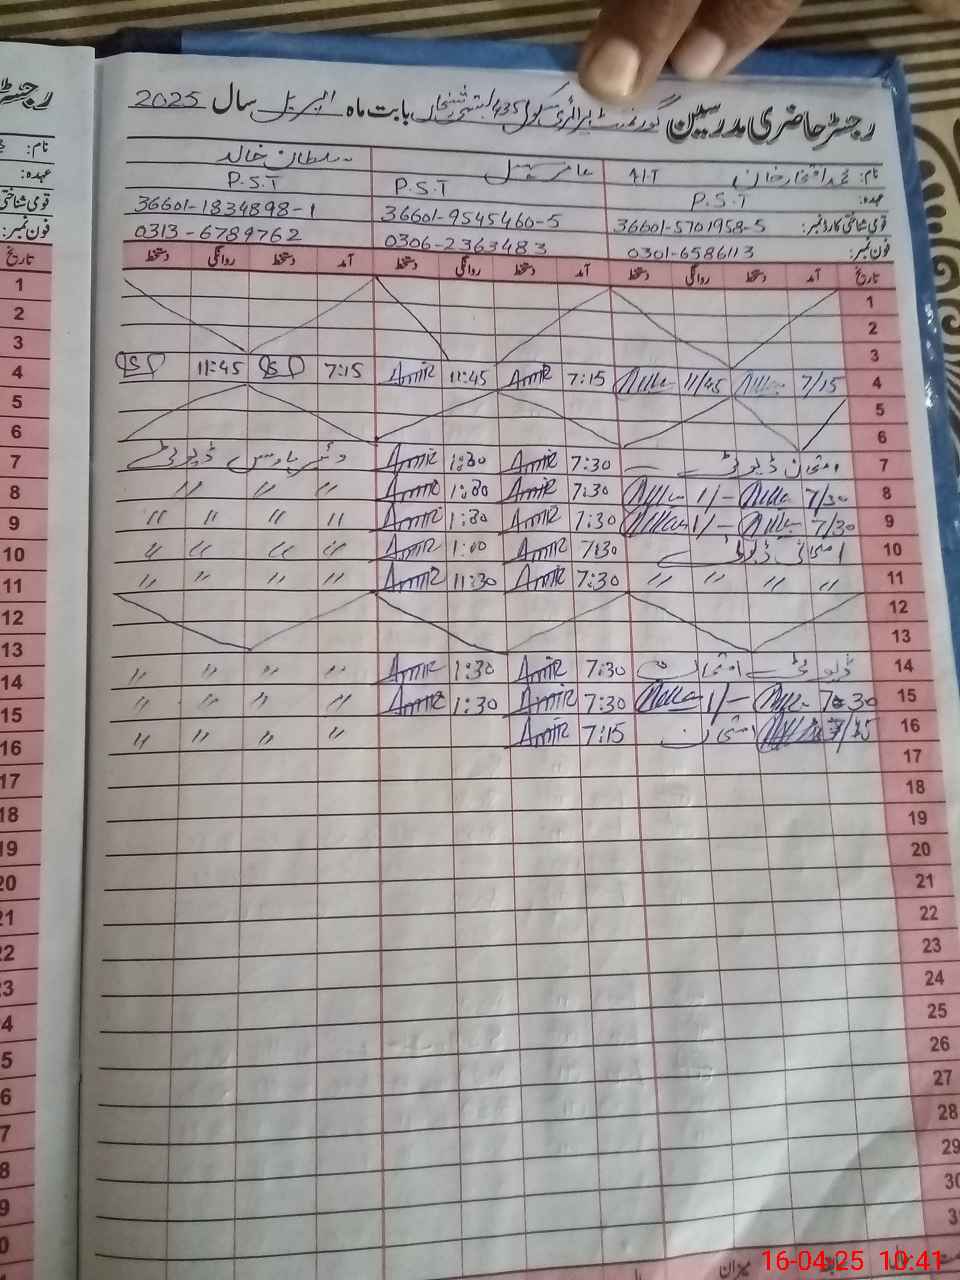 رجسٹر حاضری مدرسین گورنمنٹ پرائمری سکول 435 بابت ماہ اپریل سال 2025
نام: محمد افتخار خان AIT عامر سہیل سلطان خالد
عہدہ: P.S.T P.S.T P.S.T
قومی شناختی کارڈ نمبر: 36601-5701958-5 36601-9545460-5 36601-1834898-1
فون نمبر: 0301-6586113 0306-2363483 0313-6789762
تاریخ آمد دستخط روانگی دستخط آمد دستخط روانگی دستخط آمد دستخط روانگی دستخط تاریخ
1 1
2 2
3 3
4 7/15 11/45 7:15 Amir 11:45 Amir 7:15 11:45 4
5 5
6 6
7 امتحان ڈیوٹی 7:30 Amir 1:30 Amir ڈیوٹی 7
8 7/30 1/- 7:30 Amir 1:30 Amir " " " 8
9 7/30 1/- 7:30 Amir 1:30 Amir " " " " 9
10 امتحانی ڈیوٹی 7:30 Amir 1:00 Amir " " " " 10
11 " " " " 7:30 Amir 11:30 Amir " " " " 11
12 12
13 13
14 ڈیوٹی امتحان 7:30 Amir 1:30 Amir " " " " 14
15 7:30 1/- 7:30 Amir 1:30 Amir " " " " 15
16 امتحان 7:15 Amir " " " " 16
17 17
18 18
19 19
20 20
21 21
22 22
23 23
24 24
25 25
26 26
27 27
28 28
29 29
30 30
میزان
16-04-25 10:41